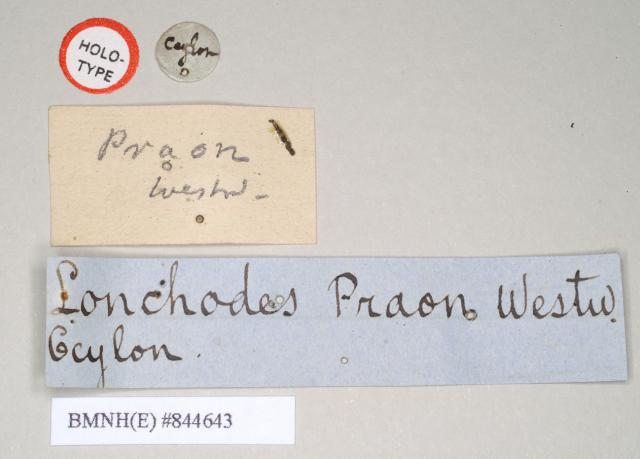 HOLO-
TYPE
Ceylon
Praon
Westw.
Lonchodes Praon Westw.
Ceylon.
BMNH(E) #844643